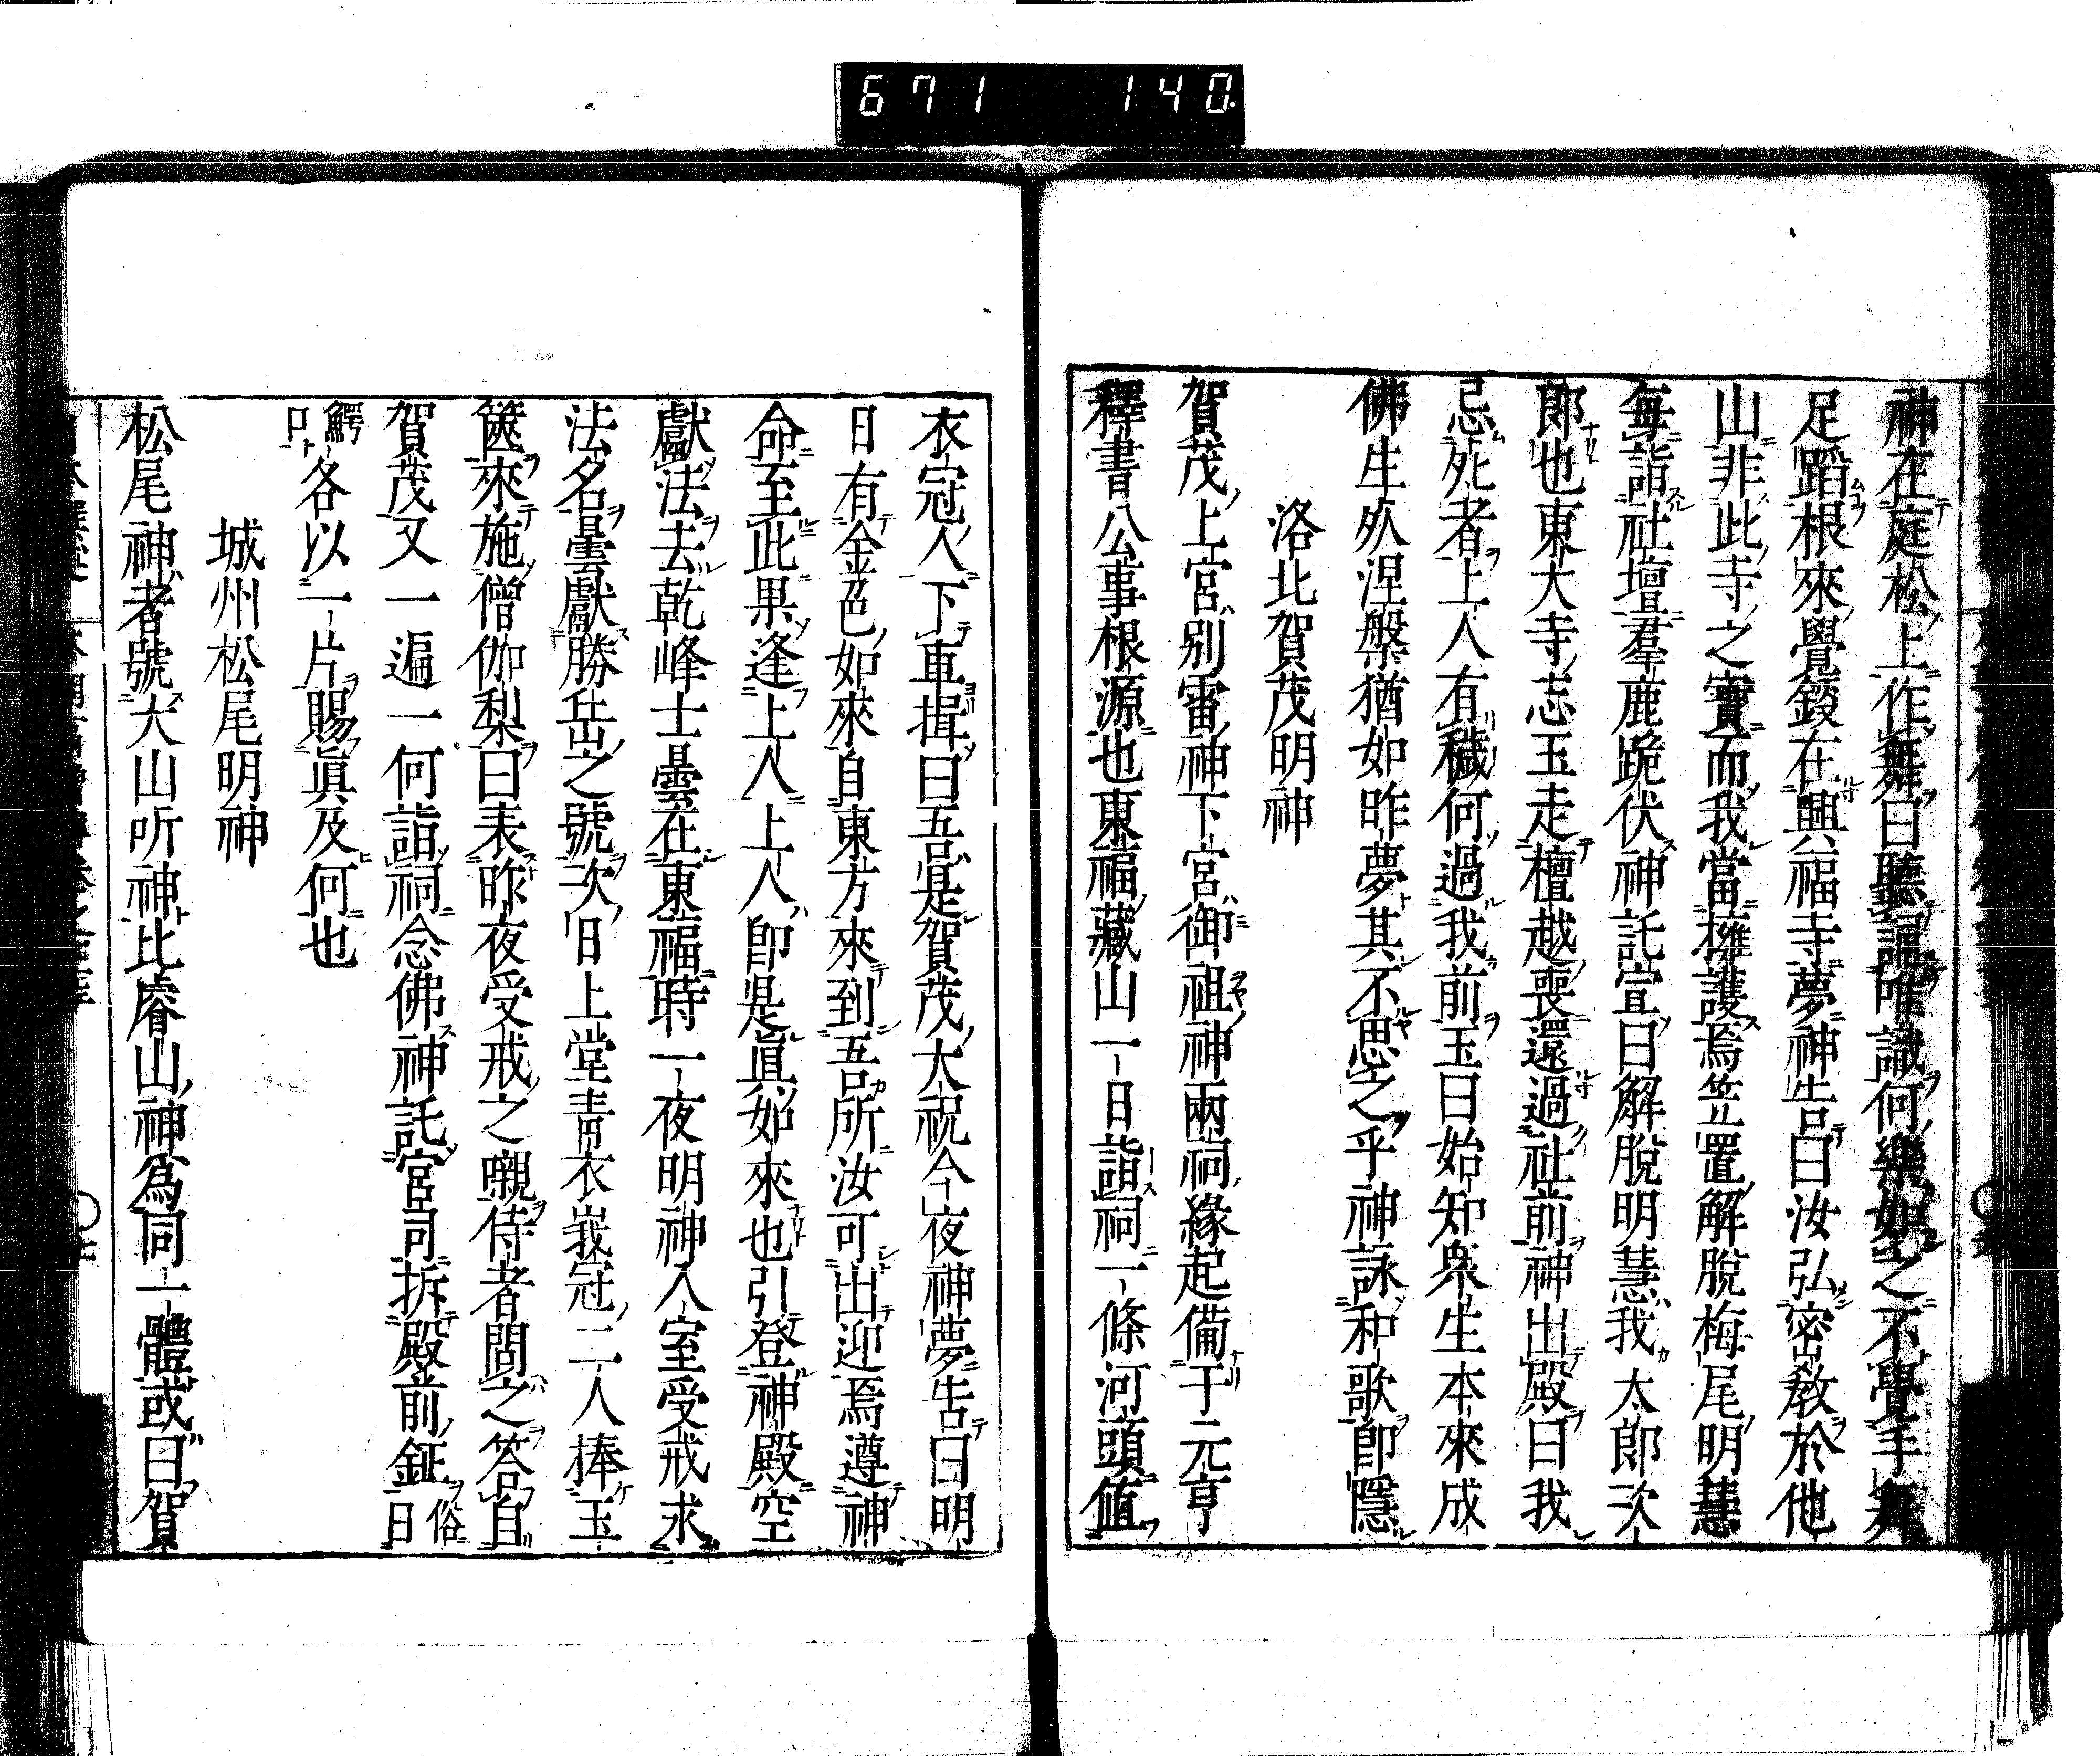 671 140
神在庭松上作舞曰聽誦唯識何樂如之不覺手舞
足蹈根來覺鍐在興福寺夢神告曰汝弘密教於他
山非此寺之實而我當擁護焉笠置解脫梅尾明慧
每詣社壇羣鹿跪伏神託宣曰解脫明慧我太郎次
郎也東大寺志玉走檀越喪還過社前神出殿曰我
忌死者上人有穢何過我前玉曰始知衆生本來成
佛生死涅槃猶如昨夢其不思之乎神詠和歌即隱
洛北賀茂明神
賀茂上宮別雷神下宮御祖神兩祠緣起備于元亨
釋書公事根源也東福藏山一日詣祠一條河頭值
衣冠人下車揖曰吾是賀茂大祝今夜神夢告曰明
日有金色如來自東方來到吾所汝可出迎焉遵神
命至此果逢上人上人即是眞如來也引登神殿空
獻法去乾峰士曇在東福時一夜明神入室受戒求
法名曇獻勝岳之號次日上堂青衣峩冠二人捧玉
篋來施僧伽梨曰表昨夜受戒之嚫侍者問之答自
賀茂又一遍一何詣祠念佛神託宮司拆殿前鉦俗曰
鰐口各以一片賜眞及何也
城州松尾明神
松尾神者號大山咋神比睿山神爲同一體或曰賀